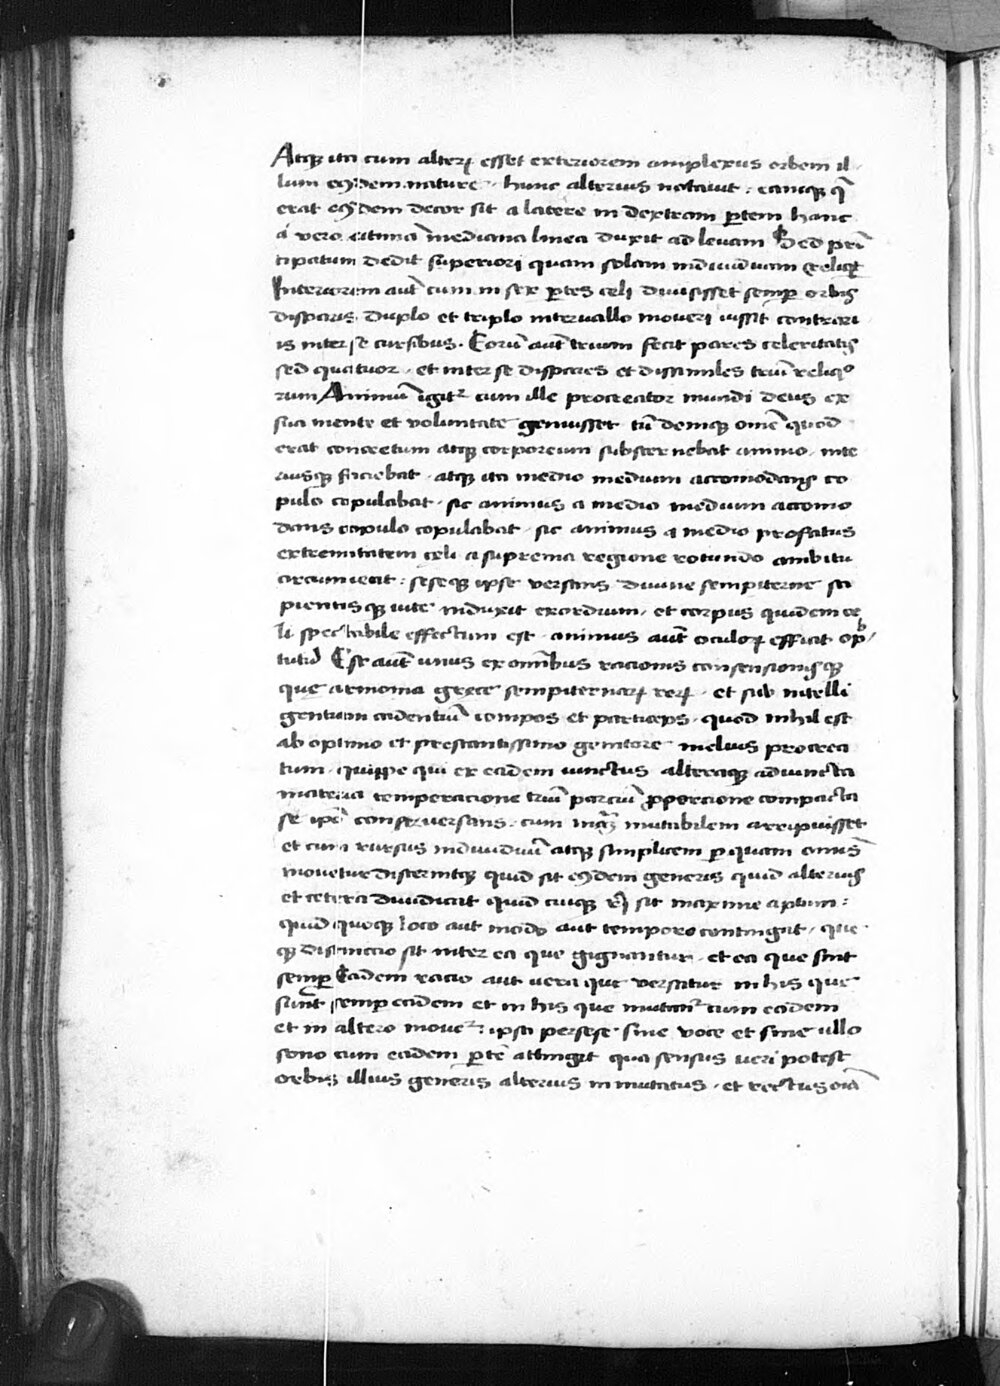 Atqꝫ ita cum alterꝝ esset exteriorem amplexus orbem il
lum eiꝰdem nature · hunc alterius notauit : eamqꝫ q̄
erat eiꝰdem decor sit a latere in dextram ꝑtem hanc
a vero citima mediana linea duxit ad leuam Sed prī
cipatum dedit superiori quam solam indiuiduam reliqͥt
Interiorem aut̄ cum in sex ꝑtes celi diuisisset semꝑ orbis
disparis duplo et triplo interuallo moueri iussit contrari
is inter se cursibus · Eorū aut̄ trium fecit pares celeritatis
sed quatuor · et inter se dispares et dissimiles triū reliqͦ
rum Animū igitᷣ cum ille procreator mundi deus ex
sua mente et voluntate genuisset tū deniqꝫ om̄e quod
erat concretum atqꝫ corporeum substernebat animo · inte
riusqꝫ faciebat · atqꝫ ita medio medium accomodans co
pulo copulabat · sic animus a medio medium accomo
dans copulo copulabat · sic animus a medio profatus
extremitatem celi a suprema regione rotundo ambitu
circumiecit : seseqꝫ ipse versans diuine sempiterne sa
pientisqꝫ uite induxit exordium · et corpus quidem ce
li spectabile effectum est · animus aut̄ oculoꝝ efficit op
tutū Est aut̄ unus ex omībus racionis consensionisqꝫ
que armonia grece sempiternaꝝ reꝝ · et sub intelli
gentiam cadentiū compos et particeps · quod nihil est
ab optimo et prestantissimo genitore melius procrea
tum · quippe qui ex eadem iunctus alteraqꝫ adiuncta
materia temperacione triū parciū ꝓporcione compacta
se ip̄e conseruersans · cum mutabilem arripuisset
et cum rursus indiuiduū atqꝫ simplicem ꝑ quam omnis
mouetur discernitqꝫ quid sit eiꝰdem generis quid alterius
et cetera diuidicat quid cuiqꝫ rei sit maxime aptum :
quid quoqꝫ loco aut modo aut tempore contingit · que
qꝫ distinccio sit inter ea que gignantur · et ea que sint
semꝑ Eadem racio aut uera que versatur in his que
sunt semꝑ eadem et in his que mutanᷣ cum eadem
et in altero mouetᷣ : ipsa per sese sine voce et sine ullo
sono cum eadem ꝑtē attingit qua sensus ueri potest
orbis illius generis alterius inmutatus · et rectus oīa